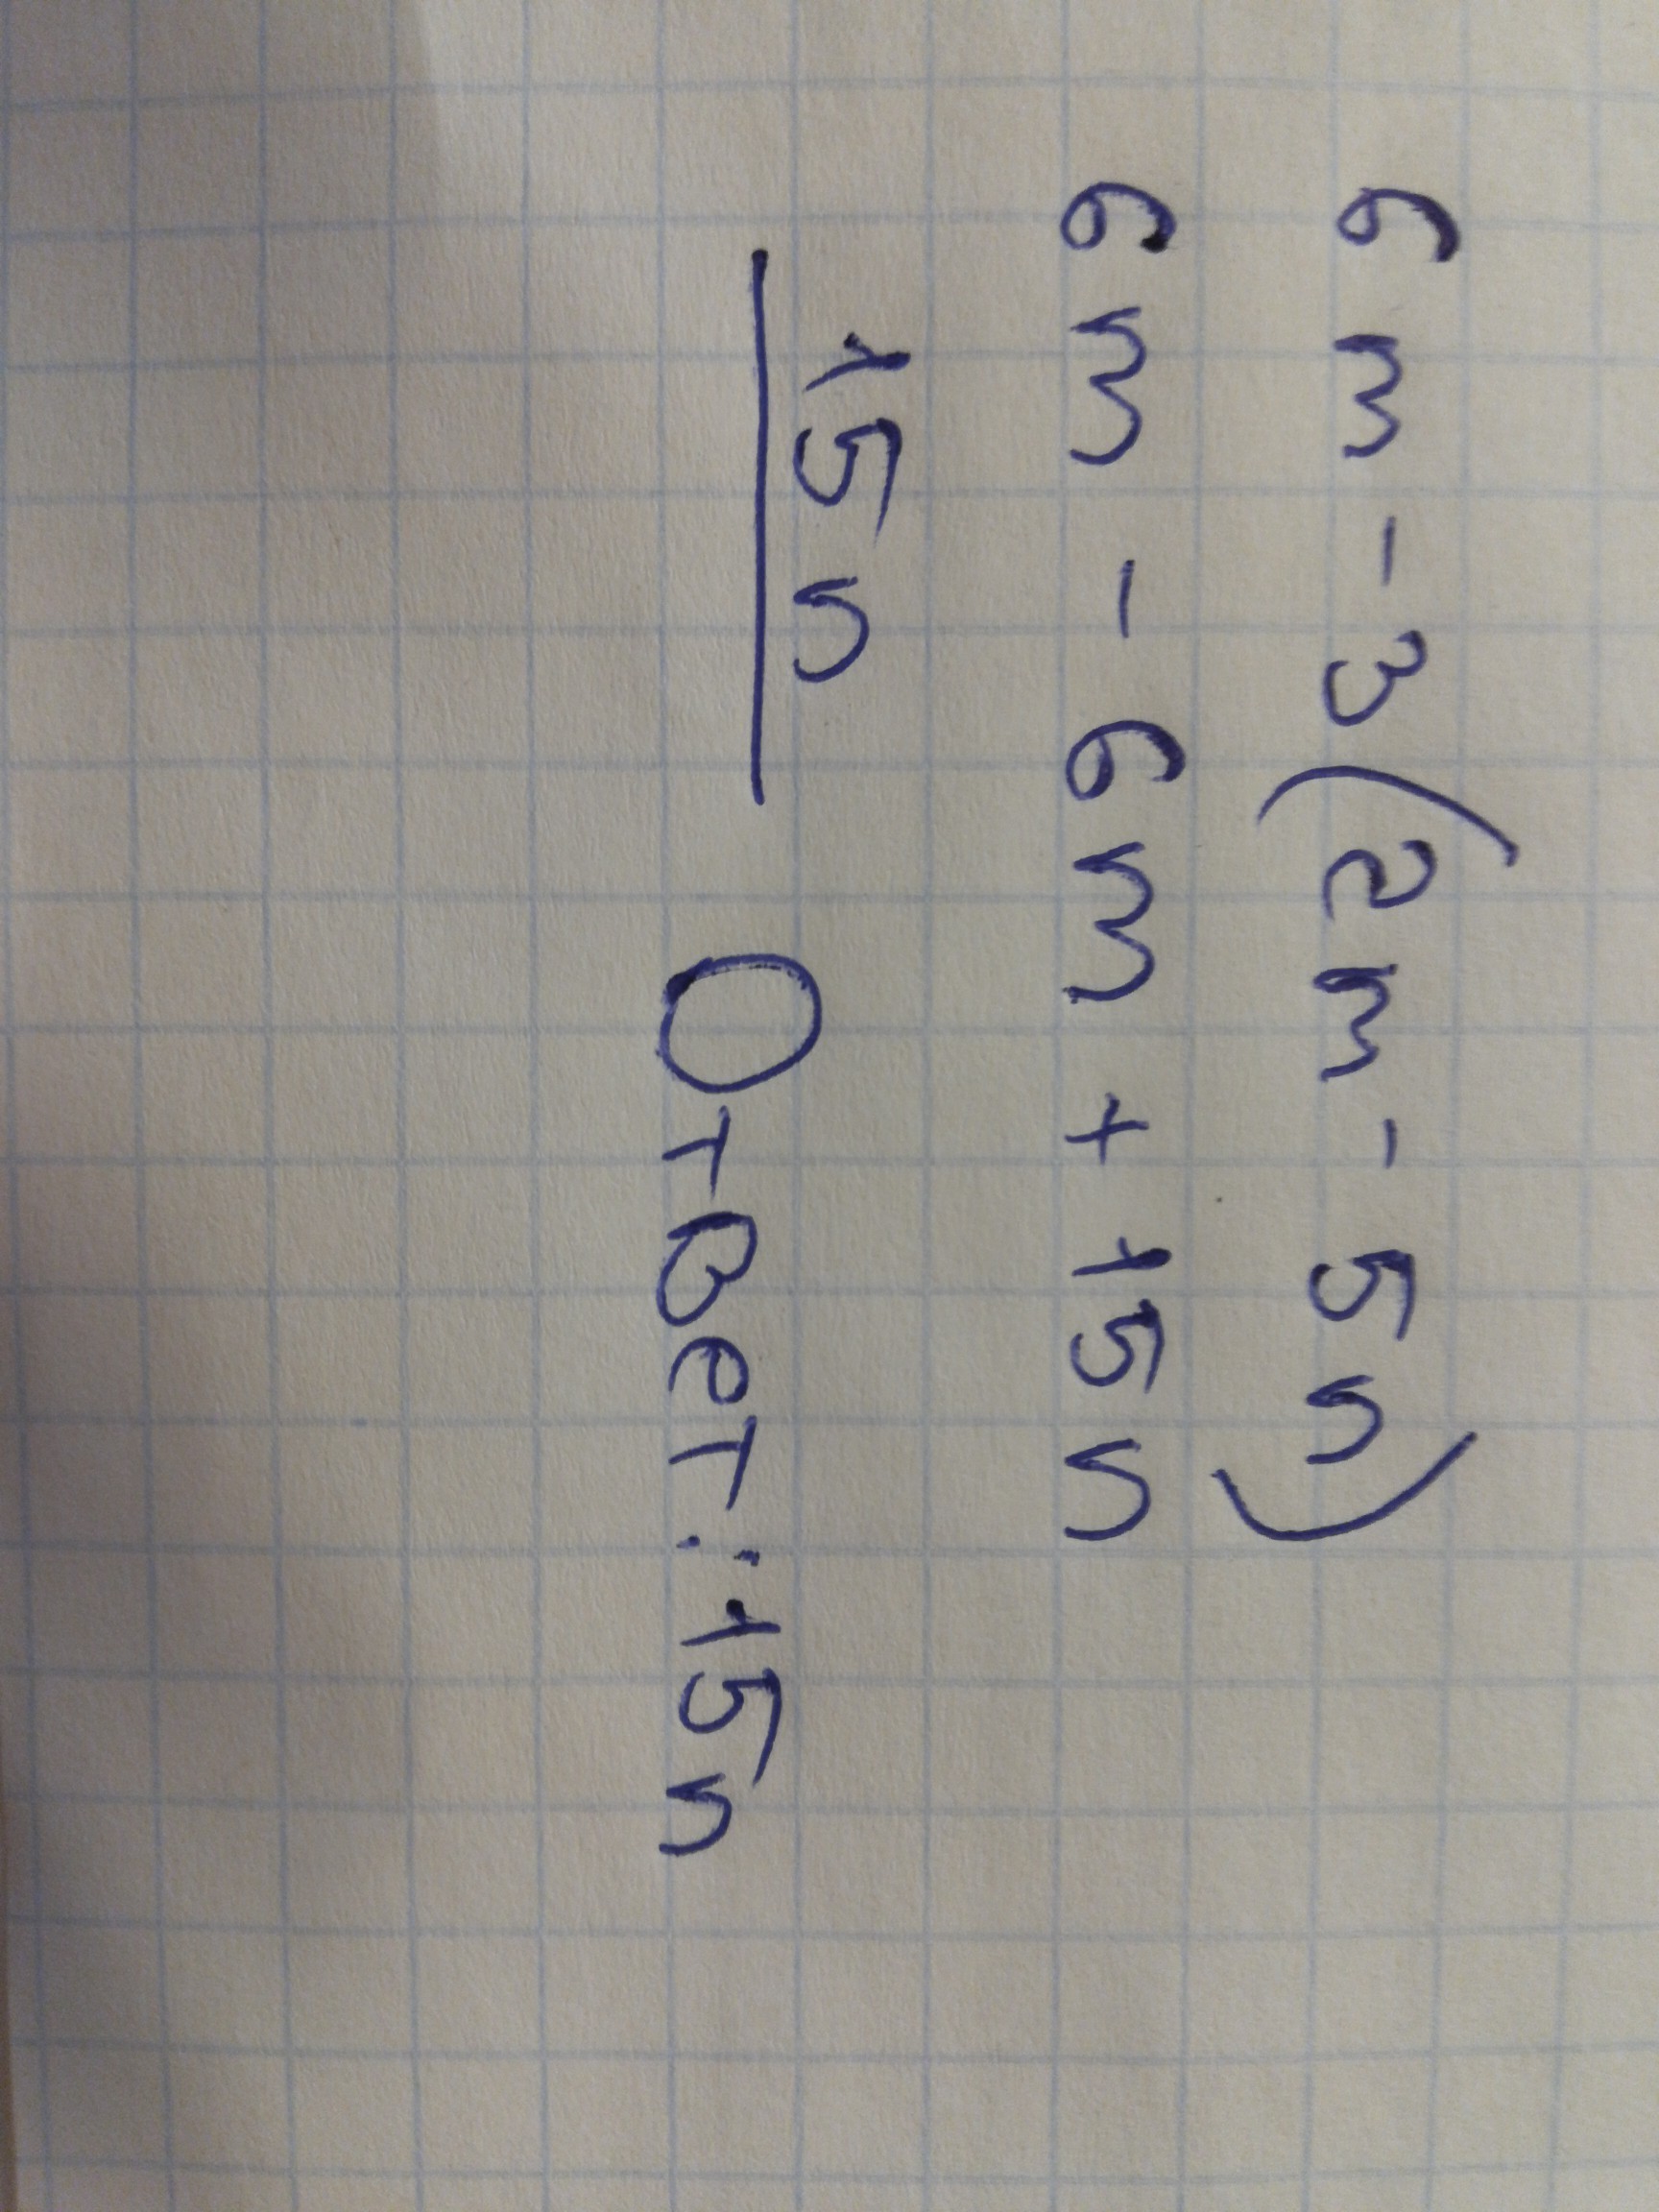 6m-3(2m-5n)
6m-6m+15n
15n
Ответ: 15n